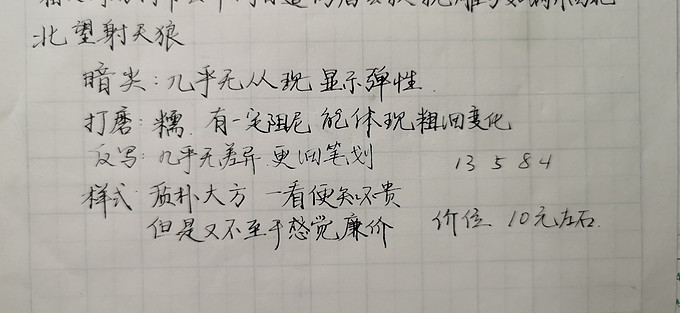 北望射天狼
暗尖：几乎无从现显示弹性.
打磨：糯.有一定阻尼 能体现粗细变化
反写：几乎无差异.更细笔划 13 5 8 4
样式 质朴大方 一看便知不贵
但是又不至于感觉廉价 价位 10元左右.